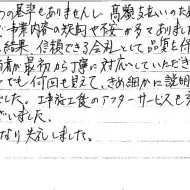 の基準もありませんし 高額支払いのため
事業内容の疑問や桜が多々ありまし
結果、信頼できる会社として品質を保
者が最初から丁寧に対応していただき
でも何回も見えて、きめ細かに説明
した。工事施工後のアフターサービスも
ざいました。
なり失礼しました。